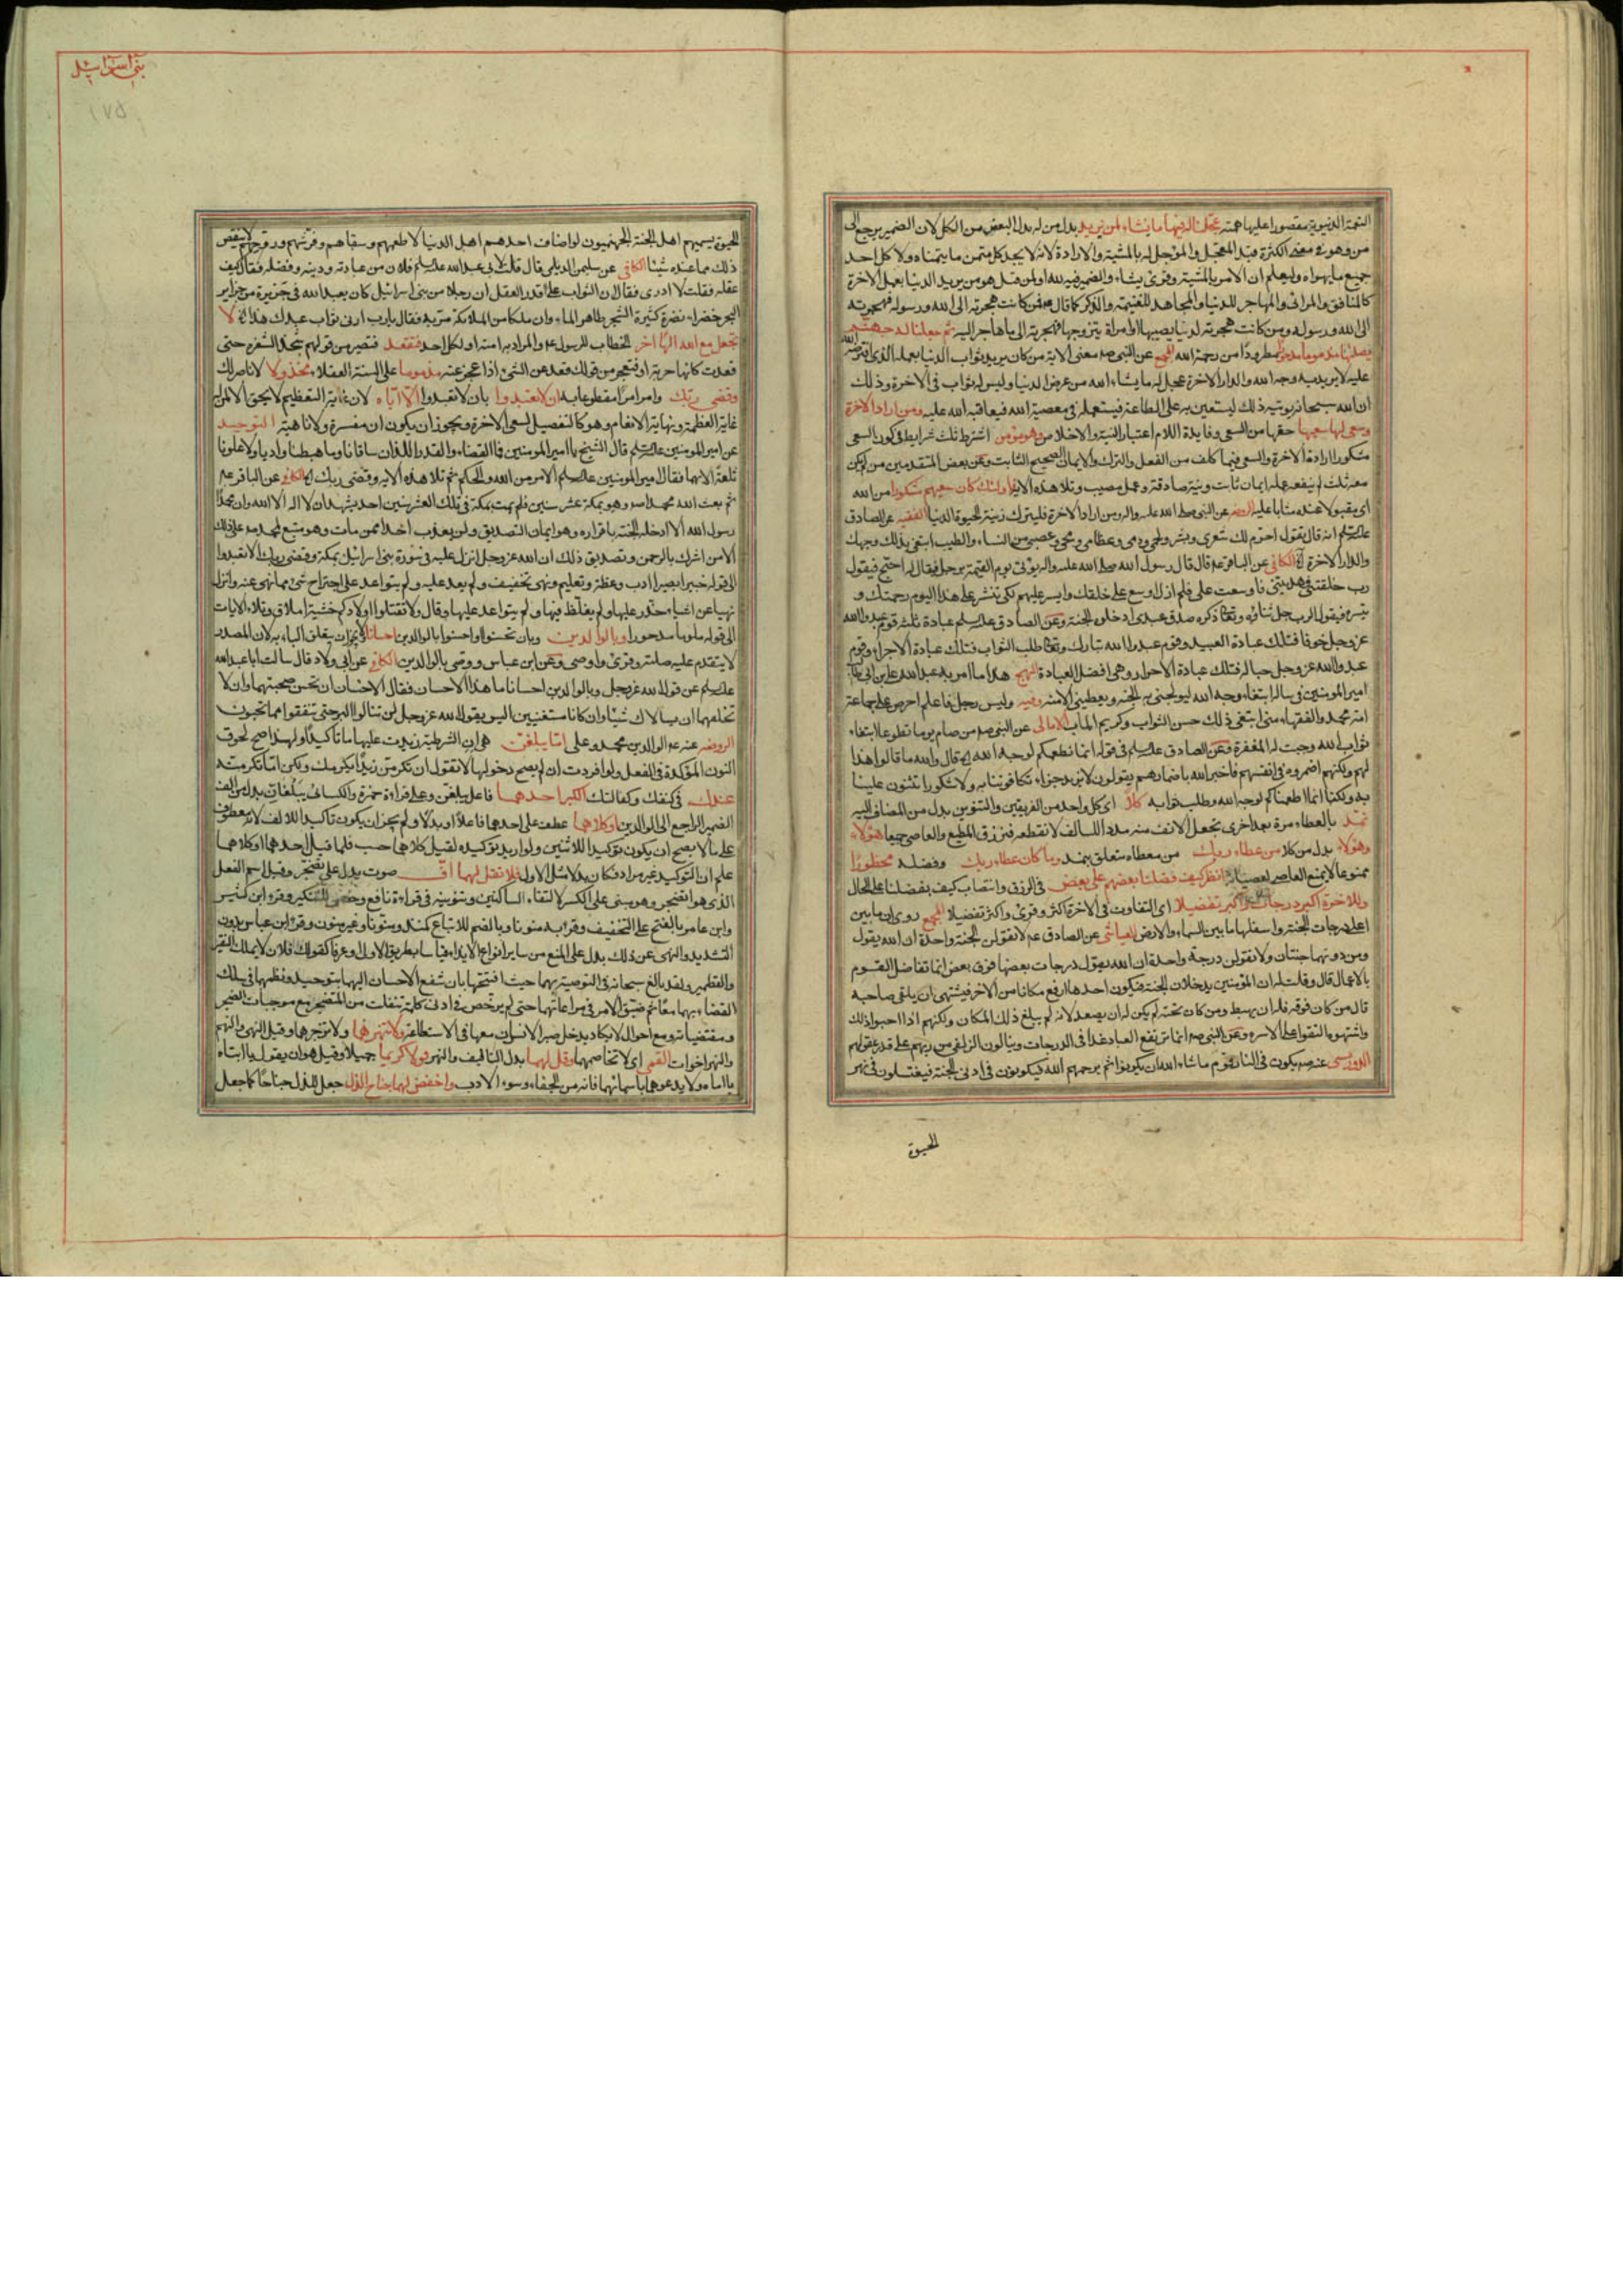 النعمة الدنيوية مقصورا عليها همته عجلنا له فيها ما نشاء لمن نريد بدل من له بدل البعض من الكل لان الضمير يرجع الى
من وهو في معنى الكثرة قيد المعجل والمؤجل له بالمشية والارادة لانه لا يجد كل متمن ما يتمناه ولا كل احد
جميع ما يهواه وليعلم ان الامر بالمشية وقرئ يشاء والضمير فيه لله او لمن قيل هو من يريد الدنيا بعمل الاخرة
كالمنافق والمرائى والمهاجر للدنيا والمجاهد للغنيمة والذكر كما قال ص فمن كانت هجرته الى الله ورسوله فهجرته
الى الله ورسوله ومن كانت هجرته لدنيا يصيبها او امرأة يتزوجها فهجرته الى ما هاجر اليه ثم جعلنا له جهنم
يصليها مذموما مدحورا مطرودا من رحمة الله المجمع عن النبى ص معنى الاية من كان يريد ثواب الدنيا بعمله الذى افترضه الله
عليه لا يريد به وجه الله والدار الاخرة عجل له ما يشاء الله من عرض الدنيا وليس له ثواب فى الاخرة وذلك
ان الله سبحانه يؤتيه ذلك ليستعين به على الطاعة فيستعمله فى معصية الله فيعاقبه الله عليه ومن اراد الاخرة
وسعى لها سعيها حقها من السعى وفايدة اللام اعتبار النية والاخلاص وهو مؤمن اشترط ثلث شرايط فى كون السعى
مشكورا ارادة الاخرة والسعى فيما كلف من الفعل والترك والايمان الصحيح الثابت وعن بعض المتقدمين من لم يكن
معه ثلث لم ينفعه عمله ايمان ثابت ونية صادقة وعمل مصيب وتلا هذه الاية فاولئك كان سعيهم مشكورا من الله
اى مقبولا عنده مثابا عليه الروضه عن النبى صلى الله عليه واله ومن اراد الاخرة فليترك زينة الحيوة الدنيا الفقيه عن الصادق
عليه السلم انه قال يقول احرم لك شعرى وبشرى ولحمى ودمى وعظامى ومخى وعصبى من النساء والطيب ابتغى بذلك وجهك
والدار الاخرة الكافى عن الباقر ع قال قال رسول الله صلى الله عليه واله يؤتى يوم القيمة برجل فيقال له احتج فيقول
رب خلقتنى هديتنى فاوسعت على فلم ازل اوسع على خلقك وايسر عليهم لكى تنشر على هذا اليوم رحمتك و
تيسره فيقول الرب جل ثناؤه وتعالى ذكره صدق عبدى ادخلوه الجنة وعن الصادق عليه السلم عبادة ثلثة قوم عبدوا الله
عز وجل خوفا فتلك عبادة العبيد وقوم عبدوا الله تبارك وتعالى طلب الثواب فتلك عبادة الاجراء وقوم
عبدوا الله عز وجل حبا له فتلك عبادة الاحرار وهى افضل العبادة النهج هذا ما امر به عبد الله على بن ابى طالب
امير المؤمنين فى ماله ابتغاء وجه الله ليولجنى به الجنة ويعطينى الامنة وفيه وليس رجل فاعلم احرص على جماعة
امة محمد والفتها منى ابتغى فى ذلك حسن الثواب وكريم المآب الامالى عن النبى ص من صام يوما تطوعا ابتغاء
ثواب الله وجبت له المغفرة وعن الصادق عليه السلم فى قوله انما نطعمكم لوجه الله قال والله ما قالوا هذا
لهم ولكنهم اضمروه فى انفسهم فاخبر الله باضمارهم يقولون لا نريد جزاء تكافوننا به ولا شكورا تثنون علينا
به ولكنا انما اطعمناكم لوجه الله وطلب ثوابه كلا اى كل واحد من الفريقين والتنوين بدل من المضاف اليه
نمد بالعطاء مرة بعد اخرى بجعل الانف منه مددا للسالف لا نقطعه فنرزق المطيع والعاصى جميعا هؤلاء
وهؤلاء بدل من كلا من عطاء ربك من معطاه متعلق بنمد وما كان عطاء ربك وفضله محظورا
ممنوعا لا يمنع العاصى لعصيانه انظر كيف فضلنا بعضهم على بعض فى الرزق وانتصاب كيف بفضلنا على الحال
وللاخرة اكبر درجات واكبر تفضيلا اى التفاوت فى الاخرة اكثر وقرئ واكثر تفضيلا المجمع روى ان ما بين
اعلى درجات الجنة واسفلها ما بين السماء والارض العياشى عن الصادق ع لا تقولن الجنة واحدة ان الله يقول
ومن دونهما جنتان ولا تقولن درجة واحدة ان الله يقول درجات بعضها فوق بعض انما تفاضل القوم
بالاعمال قال وقلت له ان المؤمنين يدخلان الجنة فيكون احدهما ارفع مكانا من الاخر فيشتهى ان يلقى صاحبه
قال من كان فوقه فله ان يهبط ومن كان تحته لم يكن له ان يصعد لانه لم يبلغ ذلك المكان ولكنهم اذا احبوا ذلك
واشتهوه التقوا على الاسرة وعن النبى ص انما ترتفع العباد غدا فى الدرجات وينالون الزلفى من ربهم على قدر عقولهم
عنه ص يكون فى النار قوم ما شاء الله ان يكونوا ثم يرحمهم الله فيكونون فى ادنى الجنة فيغتسلون فى نهر
الحيوة
بنى اسرائيل
١٧٥
الحيوة يسميهم اهل الجنة الجهنميون لو اضاف احدهم اهل الدنيا لاطعمهم وسقاهم وفرشهم وزوجهم لا ينقص
ذلك مما عنده شيئا الكافى عن سليمن الديلمى قال قلت لابى عبد الله عليه السلم فلان من عبادته ودينه وفضله فقال كيف
عقله فقلت لا ادرى فقال ان الثواب على قدر العقل ان رجلا من بنى اسرائيل كان يعبد الله فى جزيرة من جزاير
البحر خضراء نضرة كثيرة الشجر ظاهر الماء وان ملكا من الملائكة مر به فقال يا رب ارنى ثواب عبدك هذا لا
تجعل مع الله الها اخر الخطاب للرسول ع والمراد به امته او لكل احد فتقعد فتصير من قولهم شحذ الشفرة حتى
قعدت كانها حربة او فتعجز من قولك قعد عن الشئ اذا عجز عنه مذموما على السنة العقلاء مخذولا لا ناصر لك
وقضى ربك وامر امرا مقطوعا به ان لا تعبدوا بان لا تعبدوا الا اياه لان غاية التعظيم لا يحق الا لمن له
غاية العظمة ونهاية الانعام وهو كالتفصيل لسعى الاخرة ويجوز ان يكون ان مفسرة ولا ناهية التوحيد
عن امير المؤمنين عليه السلم قال الشيخ يا امير المؤمنين فما القضاء والقدر اللذان ساقانا وما هبطنا واديا ولا علونا
تلعة الا بهما فقال امير المؤمنين عليه السلم الامر من الله والحكم ثم تلا هذه الاية وقضى ربك الكافى عن الباقر ع
ثم بعث الله محمدا ص وهو بمكة عشر سنين فلم يمت بمكة فى تلك العشر سنين احد يشهد ان لا اله الا الله وان محمدا
رسول الله الا ادخله الجنة باقراره وهو ايمان التصديق ولن يعذب احدا ممن مات وهو متبع لمحمد ص على ذلك
الا من اشرك بالرحمن وتصديق ذلك ان الله عز وجل انزل عليه فى سورة بنى اسرائيل بمكة وقضى ربك الا تعبدوا
الى قوله خبيرا بصيرا ادب وعظة وتعليم ونهى تخفيف ولم يعد عليه ولم يتواعد على اجتراح شئ مما نهى عنه وانزل
نهيا عن اشياء حذر عليها ولم يغلظ فيها ولم يتواعد عليها وقال ولا تقتلوا اولادكم خشية املاق وتلا الايات
الى قوله ملوما مدحورا وبالوالدين وبان تحسنوا او احسنوا بالوالدين احسانا لا يجوز ان يتعلق الباء به لان المصدر
لا يتقدم عليه صلته وقرئ واوصى وعن ابن عباس ووصى بالوالدين الكافى عن ابى ولاد قال سالت ابا عبد الله
عليه السلم عن قول الله عز وجل وبالوالدين احسانا ما هذا الاحسان فقال الاحسان ان تحسن صحبتهما وان لا
تكلفهما ان يسالاك شيئا وان كانا مستغنيين اليس يقول الله عز وجل لن تنالوا البر حتى تنفقوا مما تحبون
الروضه عنه ع الوالدين محمد وعلى اما يبلغن هى ان الشرطية زيدت عليها ما تاكيدا ولهذا صح لحوق
النون المؤكدة فى الفعل ولو افردت ان لم يصح دخولها لا تقول ان تكرمن زيدا يكرمك ولكن اما تكرمنه
عندك فى كنفك وكفالتك الكبر احدهما فاعل يبلغن وعلى قراءة حمزة والكسائى يبلغان بدل من الف
الضمير الراجع الى الوالدين او كلاهما عطف على احدهما فاعلا او بدلا ولم يجز ان يكون تاكيدا للالف لانه معطوف
على ما لا يصح ان يكون توكيدا للاثنين ولو اريد توكيده لقيل كلاهما حسب فلما قيل احدهما او كلاهما
علم ان التوكيد غير مراد فكان بدلا مثل الاول فلا تقل لهما اف صوت يدل على تضجر وقيل اسم الفعل
الذى هو اتضجر وهو مبنى على الكسر لالتقاء الساكنين وتنوينه فى قراءة نافع وحفص للتنكير وقرء ابن كثير
وابن عامر بالفتح على التخفيف وقرئ به منونا وبالضم للاتباع كمنذ ومنونا وغير منون وقرئ ابن عباس بدون
التشديد والنهى عن ذلك يدل على المنع من ساير انواع الايذاء قياسا بطريق الاولى وعرفا كقولك فلان لا يملك النقير
والقطمير ولقد بالغ سبحانه فى التوصية بهما حيث افتتحها بان شفع الاحسان اليهما بتوحيده ونظمهما فى سلك
القضاء بهما معا ثم ضيق الامر فى مراعاتهما حتى لم يرخص فى ادنى كلمة تنفلت من المتضجر مع موجبات الضجر
ومقتضياته ومع احوال لا يكاد يدخل صبر الانسان معها فى الاستطاعة ولا تنهرهما ولا تزجرهما وقيل النهى والنهم
والنهر اخوات القمى اى لا تخاصمهما وقل لهما بدل التافيف والنهر قولا كريما جميلا وقيل هو ان يقول يا ابتاه
يا اماه ولا يدعوهما باسمائهما فانه من الجفاء وسوء الادب واخفض لهما جناح الذل جعل للذل جناحا كما جعل